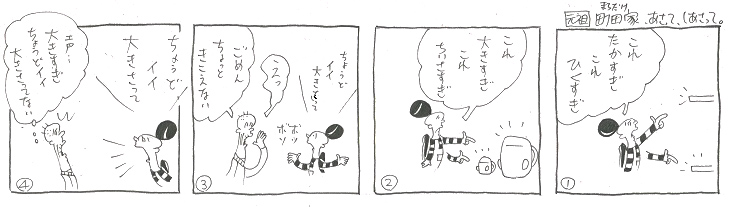 元祖
まちだけ
町田家、あさって、しあさって。
これ
たかすぎ
これ
ひくすぎ
①
これ
大きすぎ
これ
ちいさすぎ
②
ちょうど
イイ
大きさって
ボソ
ボソ
えっ
ごめん
ちょっと
きこえない
③
ちょうど
イイ
大きさって
声ー
大きすぎ
ちょうどイイ
大きさってない...
④